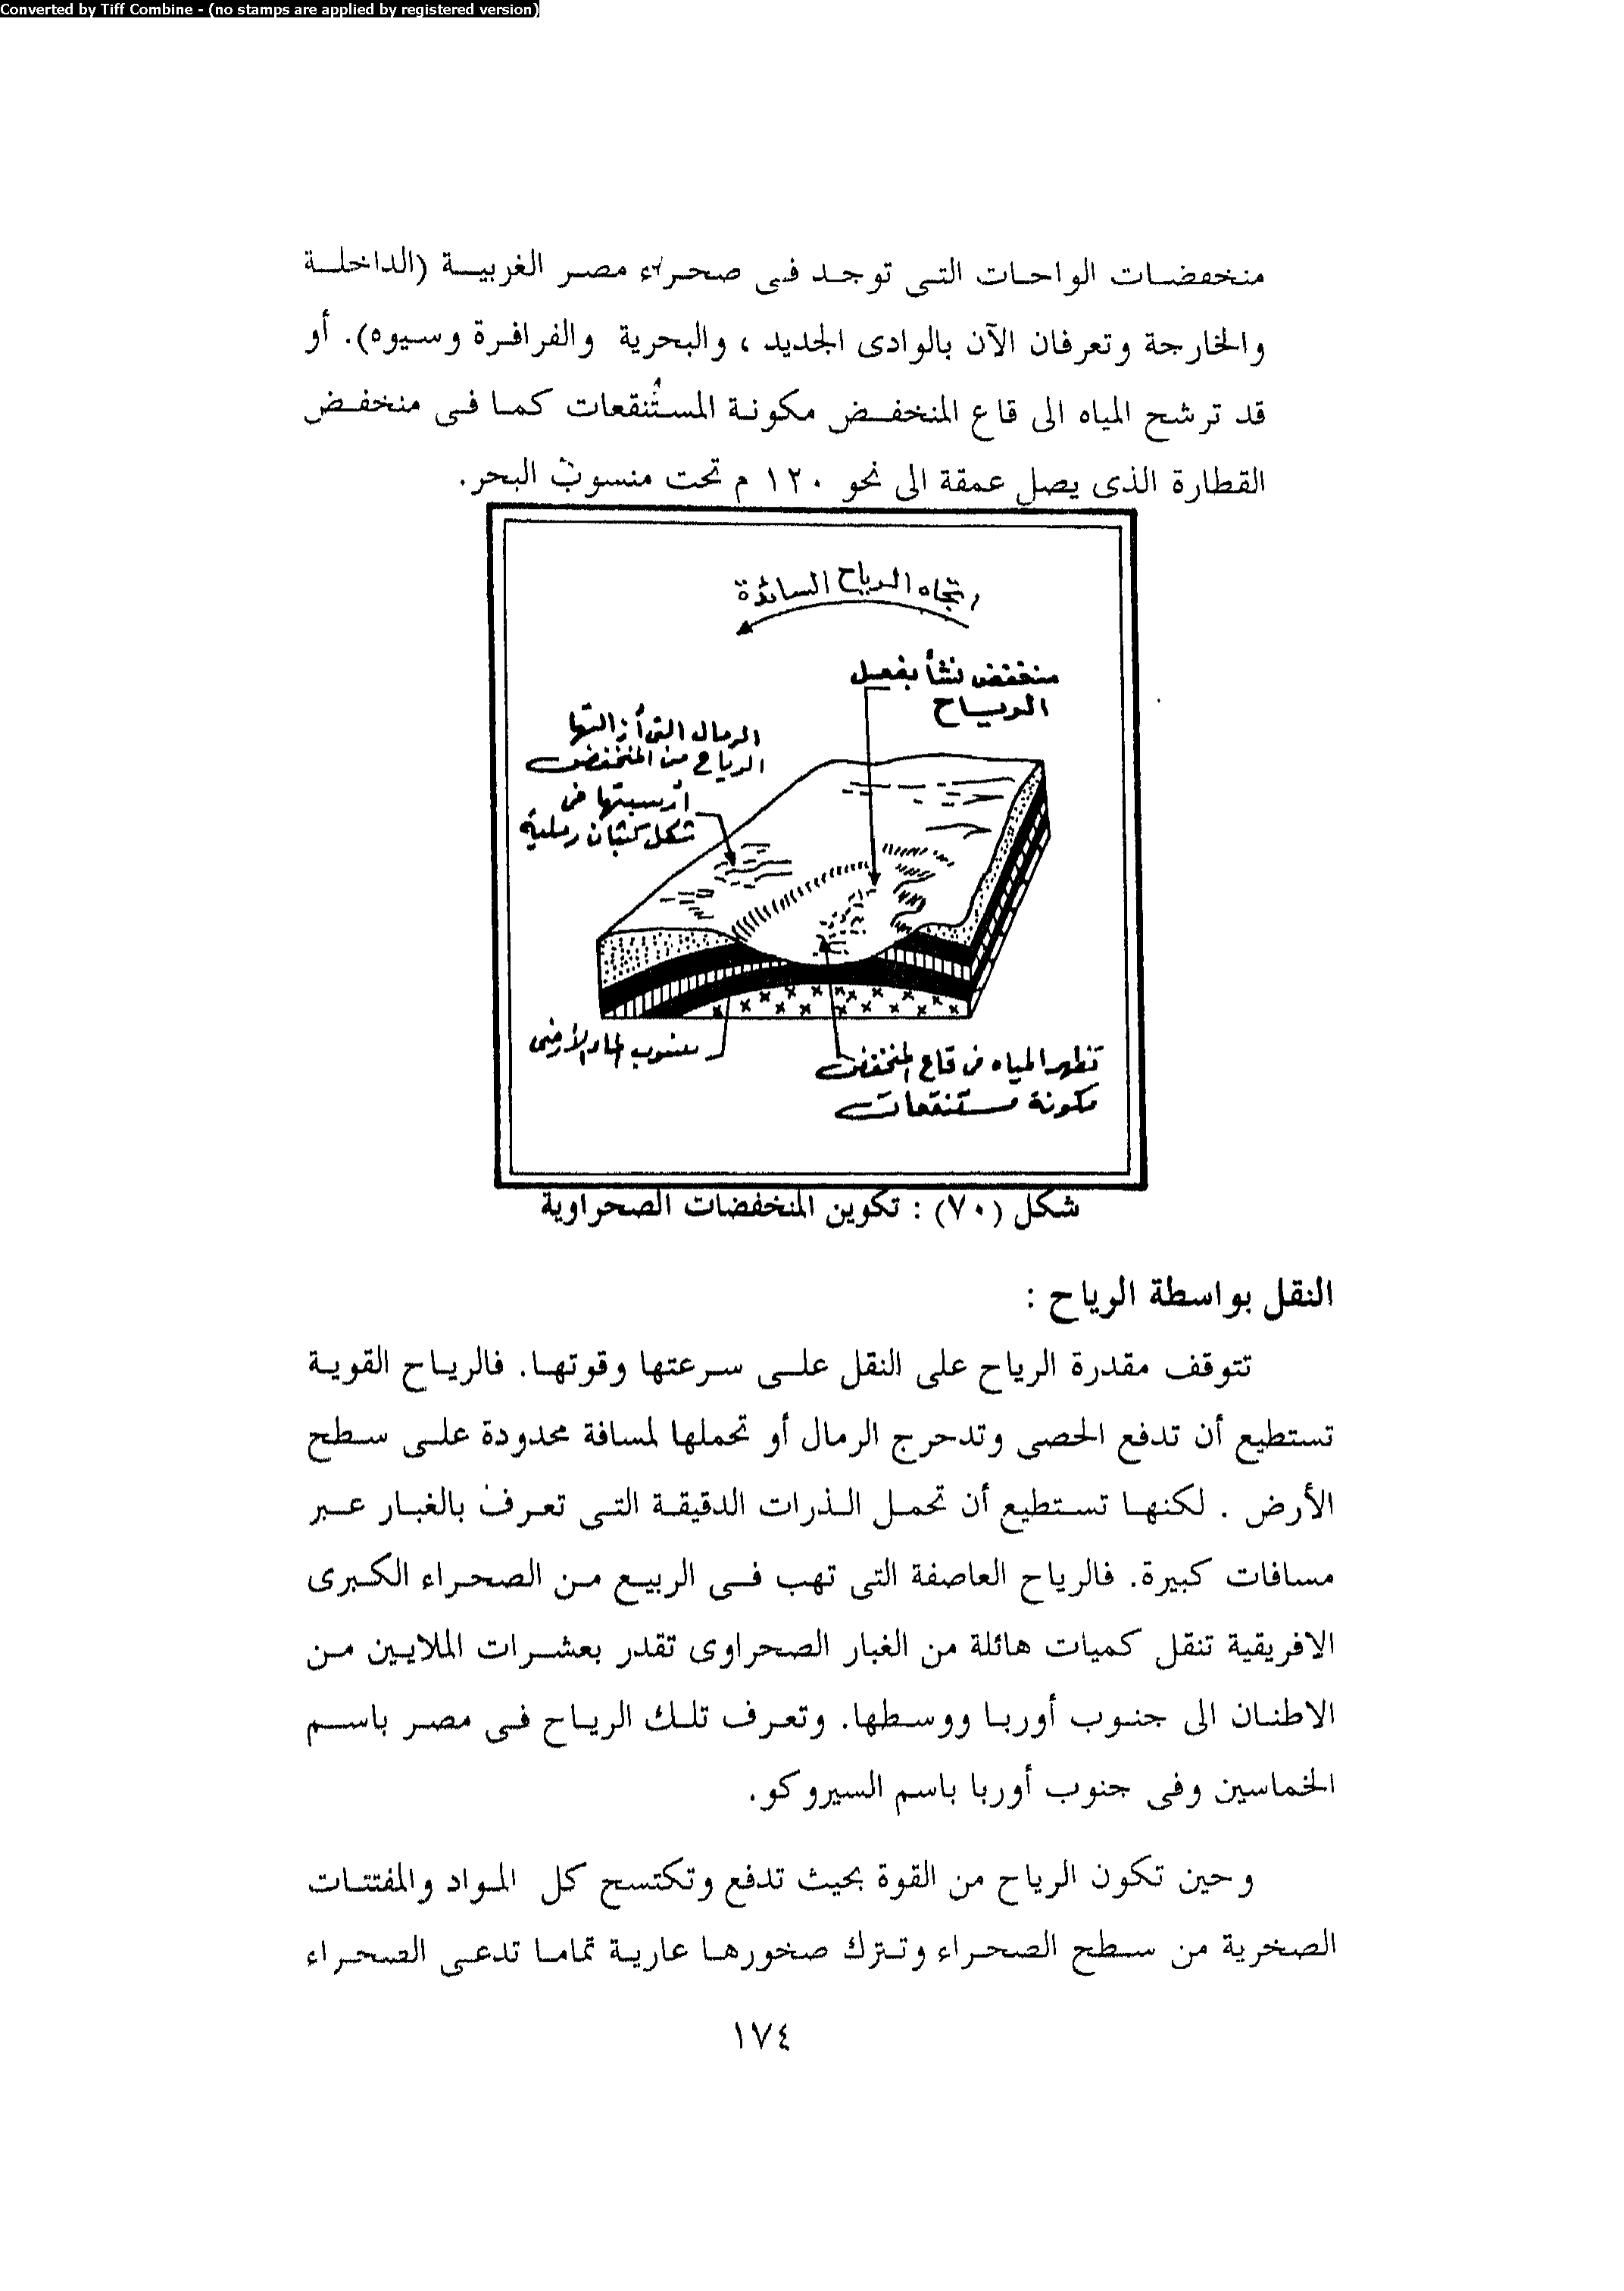 Converted by Tiff Combine - (no stamps are applied by registered version)
منخفضات الواحات التى توجد فى صحراء مصر الغربية (الداخلة
والخارجة وتعرفان الآن بالوادى الجديد ، والبحرية والفرافرة وسيوه). أو
قد ترشح المياه الى قاع المنخفض مكونة المستنقعات كما فى منخفض
القطارة الذى يصل عمقة الى نحو ١٢٠ م تحت منسوب البحر.
اتجاه الرياح السائدة
منخفض نشأ بفعل
الرياح
الرمال التى أزالتها
الرياح من المنخفض
أرسبتها فى
شكل كثبان رملية
منسوب الماء الأرضى
تظهر المياه فى قاع المنخفض
مكونة مستنقعات
شكل (٧٠) : تكوين المنخفضات الصحراوية
النقل بواسطة الرياح :
تتوقف مقدرة الرياح على النقل على سرعتها وقوتها. فالرياح القوية
تستطيع أن تدفع الحصى وتدحرج الرمال أو تحملها لمسافة محدودة على سطح
الأرض . لكنها تستطيع أن تحمل الذرات الدقيقة التى تعرف بالغبار عبر
مسافات كبيرة. فالرياح العاصفة التى تهب فى الربيع من الصحراء الكبرى
الافريقية تنقل كميات هائلة من الغبار الصحراوى تقدر بعشرات الملايين من
الاطنان الى جنوب أوربا ووسطها. وتعرف تلك الرياح فى مصر باسم
الخماسين وفى جنوب أوربا باسم السيروكو.
وحين تكون الرياح من القوة بحيث تدفع وتكتسح كل المواد والمفتتات
الصخرية من سطح الصحراء وتترك صخورها عارية تماما تدعى الصحراء
١٧٤